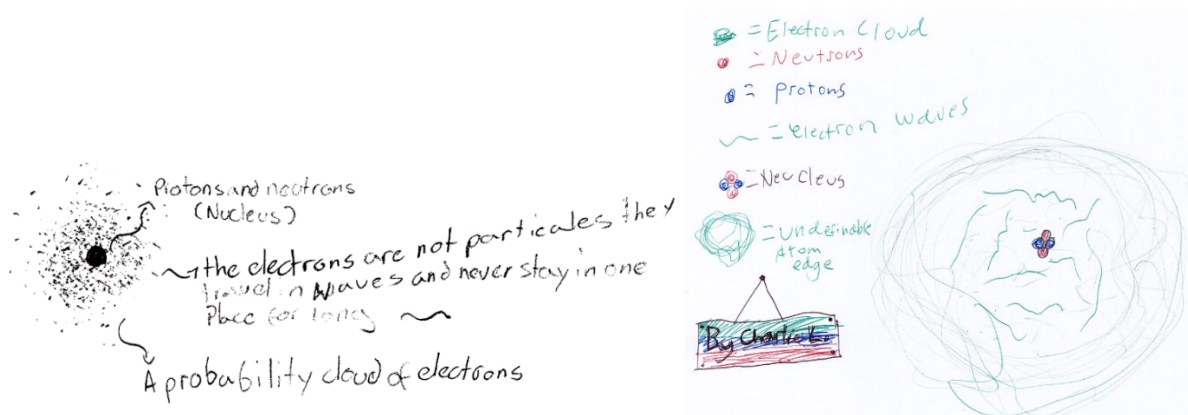 Protons and neutrons
(Nucleus)
the electrons are not particales they
travel in waves and never stay in one
Place for long
A probability cloud of electrons
= Electron Cloud
= Neutrons
= Protons
= electron waves
= Neucleus
= undefinable
Atom
edge
By